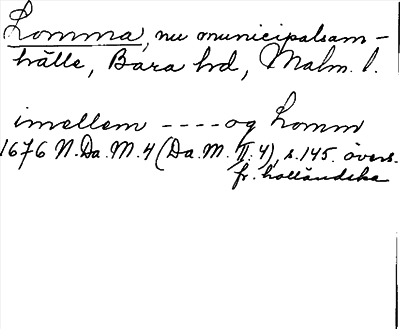 Lomma, nu municipalsam-
hälle, Bara hd, Malm. l.
imellem ---- og Lomm
1676 N.Da.M.4 (Da.M. II:4), s.145. övers.
fr. holländska